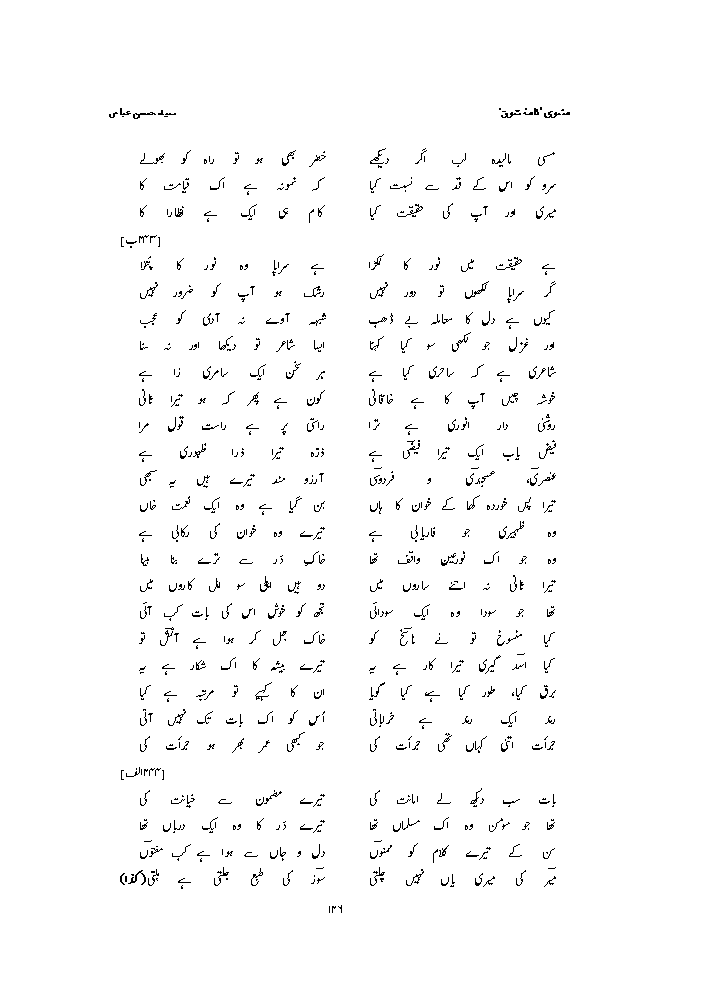 مثنوی 'نامۂ شوق' سید محسن عباس
مسی مالیدہ لب اگر دیکھے خضر بھی ہو تو راہ کو بھولے
سرو کو اس کے قد سے نسبت کیا کہ نمونہ ہے اک قیامت کا
میری اور آپ کی حقیقت کیا کام ہی ایک ہے نظارا کا
[۲۴۳ب]
ہے حقیقت میں نور کا ٹکڑا ہے سراپا وہ نور کا پُتلا
گر سراپا لکھوں تو دور نہیں رشک ہو آپ کو ضرور نہیں
کیوں ہے دل کا معاملہ بے ڈھب شبہہ آوے نہ آدمی کو عجب
اور غزل جو لکھی سو کیا کہنا ایسا شاعر تو دیکھا اور نہ سنا
شاعری ہے کہ ساحری کیا ہے ہر سخن ایک سامری زا ہے
خوشہ چیں آپ کا ہے خاقانی کون ہے پھر کہ ہو تیرا ثانی
روشنی دار انوری ہے ترا راستی پر ہے راست قول مرا
فیض یاب ایک تیرا فیضی ہے ذرّہ تیرا ذرا ظہوری ہے
عنصری، عسجدی و فردوسی آرزو مند تیرے ہیں یہ سبھی
تیرا پس خوردہ کھا کے خوان کا ہاں بن گیا ہے وہ ایک نعمت خاں
وہ ظہیری جو فاریابی ہے تیرے وہ خوان کی رکابی ہے
وہ جو اک نورعین واقف تھا خاکِ دَر سے ترے بنا بینا
تیرا ثانی نہ اتنے ساروں میں دو ہیں اہلی سو اہل کاروں میں
تھا جو سودا وہ ایک سودائی تجھ کو خوش اس کی بات کب آئی
کیا منسوخ تو نے ناسخ کو خاک جل کر ہوا ہے آتش تو
کیا اسد گیری تیرا کار ہے یہ تیرے بیشہ کا اک شکار ہے یہ
برق کیا، طور کیا ہے کیا گویا ان کا کہیے تو مرتبہ ہے کیا
رند ایک رند ہے خراباتی اُس کو اک بات تک نہیں آتی
جرأت اتنی کہاں تھی جرأت کی جو کبھی عمر بھر ہو جرأت کی
[۲۴۴الف]
بات سب دیکھ لے امانت کی تیرے مضمون سے خیانت کی
تھا جو مومن وہ اک مسلماں تھا تیرے دَر کا وہ ایک درباں تھا
سن کے تیرے کلام کو ممنوں دل و جاں سے ہوا ہے کب مفتوں
میر کی میری یاں نہیں چلتی سوز کی طبع جلتی ہے بلتی(کذا)
۱۳۶